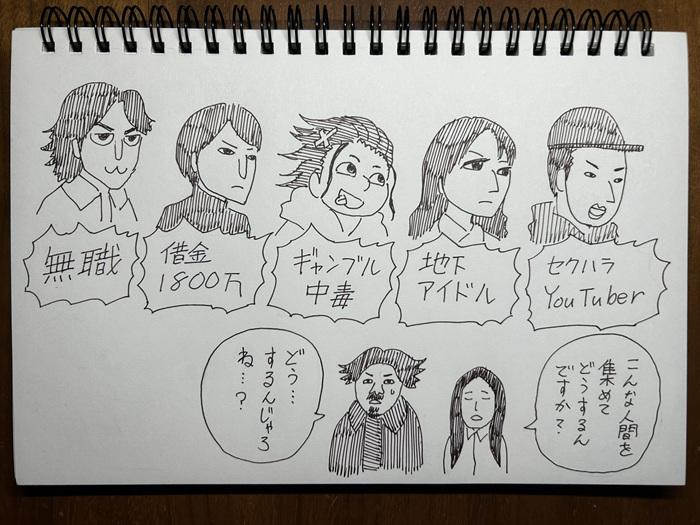 無職
借金
1800万
ギャンブル
中毒
地下
アイドル
セクハラ
YouTuber
こんな人間を
集めて
どうするん
ですか?
どう…
するんじゃろ
ね…?